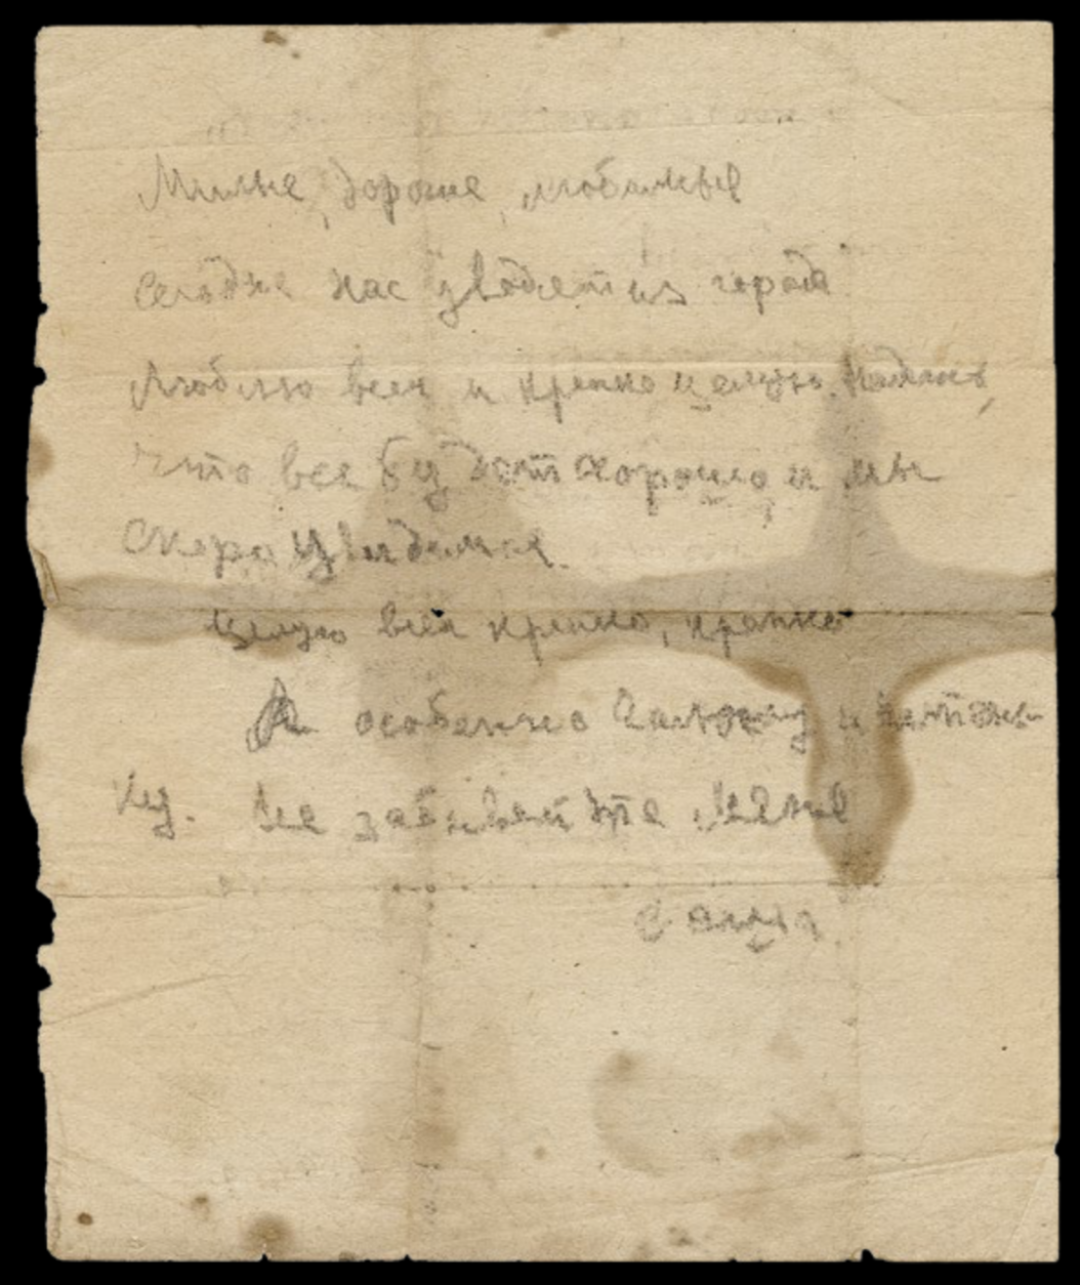 Милые, дорогие, любимые
сегодня нас уводят из города
Люблю всех и крепко целую. Надеюсь,
что все будет хорошо, и мы
скоро увидемся.
Целую всех крепко, крепко
А особенно и
ку. Не забывайте меня
Саша.